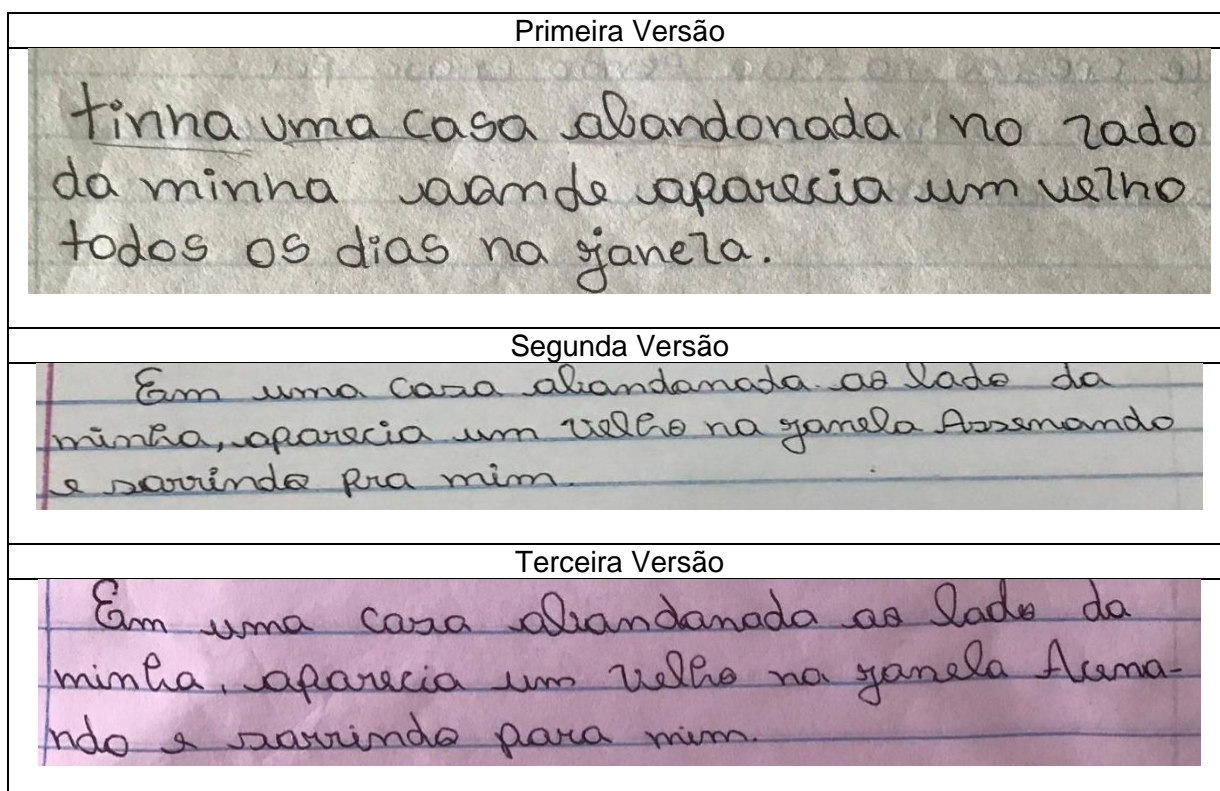 Primeira Versão
tinha uma casa abandonada no lado
da minha aonde aparecia um velho
todos os dias na janela.
Segunda Versão
Em uma casa abandanada ao lado da
minha, aparecia um velho na janela Assenando
e sorrindo pra mim.
Terceira Versão
Em uma casa abandanada ao lado da
minha, aparecia um velho na janela Acena-
ndo e sorrindo para mim.